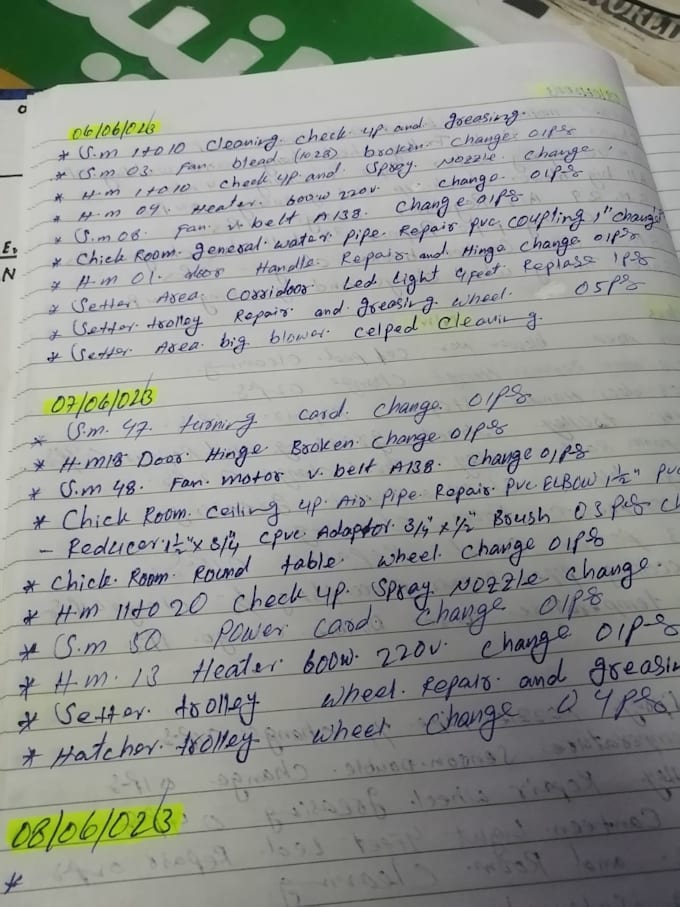 06/06/023
* S.m 1to10 Cleaning check up and greasing.
* S.m 03. Fan blead (1028) broken change 01Ps
* H.m 1to10 check up and Spray Nozzle change.
* H.m 09. Heater. 600w 220v. change 01Ps
* S.m 08. Fan v. belt A138. change 01Ps
* Chick Room. general water pipe. Repair pvc coupling 1" change
* H.m 01. door Handle Repair and Hinge change 01Ps
* Setter Area Corridoor. Led light 4feet Replase 1Ps
* Setter trolley Repair and greasing wheel. 05Ps
* Setter Area. big blower celped Cleaning.
07/06/023
* S.m. 47. turning card. change 01Ps
* H.m18 Door. Hinge Broken change 01Ps
* S.m 48. Fan. motor v. belt A138. change 01Ps
* Chick Room. ceiling up. Air pipe. Repair. pvc. ELBOW 1½" pvc
- Reducer. 1½" x 3/4 cpvc Adaptor 3/4" x ½" Brush 03Ps
* Chick. Room. Round table. wheel. change 01Ps
* H.m 11to20 check up. Spray. Nozzle change.
* S.m 50 Power card. change 01Ps
* H.m. 13 Heater. 600w. 220v. change 01Ps
* Setter. trolley wheel. Repair. and greasin
* Hatcher. trolley wheel change 04Ps
08/06/023
*